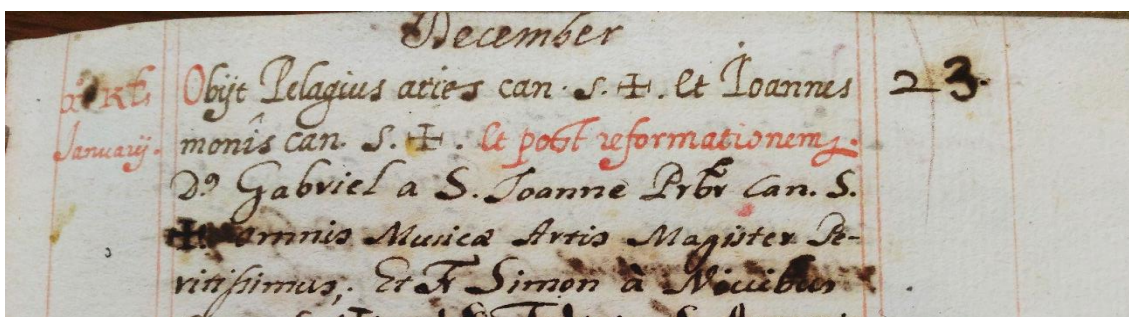 December
Kls Obijt Pelagius aries can. S. ✠. Et Ioannes 23.
Januarij. monîs can. S. ✠. Et post reformationem
D.º Gabriel a S. Joanne Prbr Can. S.
✠ omnis Musicæ Artis Magister Pe-
ritissimus; Et F. Simon à Nivibus